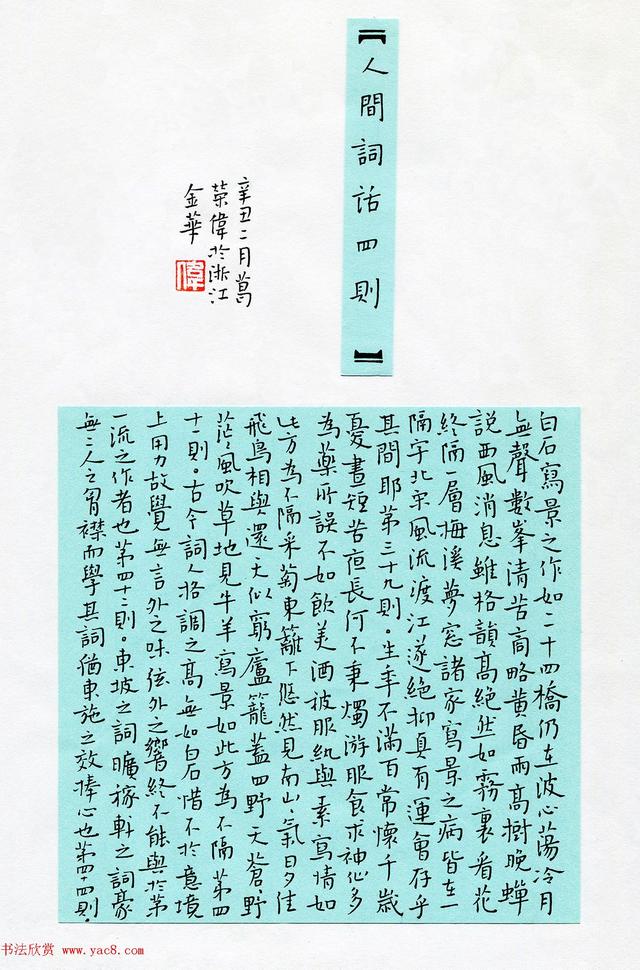 【人間詞话四則】
白石寫景之作如二十四橋仍在波心蕩冷月
無聲數峯清苦商略黄昏雨高樹晚蟬
説西風消息雖格韻高絶然如霧裏看花
終隔一層梅溪夢窓諸家寫景之病皆在一
隔字北宋風流渡江遂絶抑真有運會存乎
其間耶第三十九則。生年不滿百常懷千歲
憂晝短苦夜長何不秉燭游服食求神仙多
為藥所誤不如飲美酒被服紈與素寫情如
此方為不隔采菊東籬下悠然見南山〻氣日夕佳
飛鳥相與還天似窮廬籠蓋四野天蒼〻野
茫〻風吹草地見牛羊寫景如此方為不隔第四
十一則。古今詞人格調之高無如白石惜不於意境
上用力故覺無言外之味弦外之響終不能與於第
一流之作者也第四十二則。東坡之詞曠稼軒之詞豪
無二人之胷襟而學其詞猶東施之效捧心也第四十四則。
辛丑二月葛
荣偉於浙江
金華
偉
书法欣赏 www.yac8.com